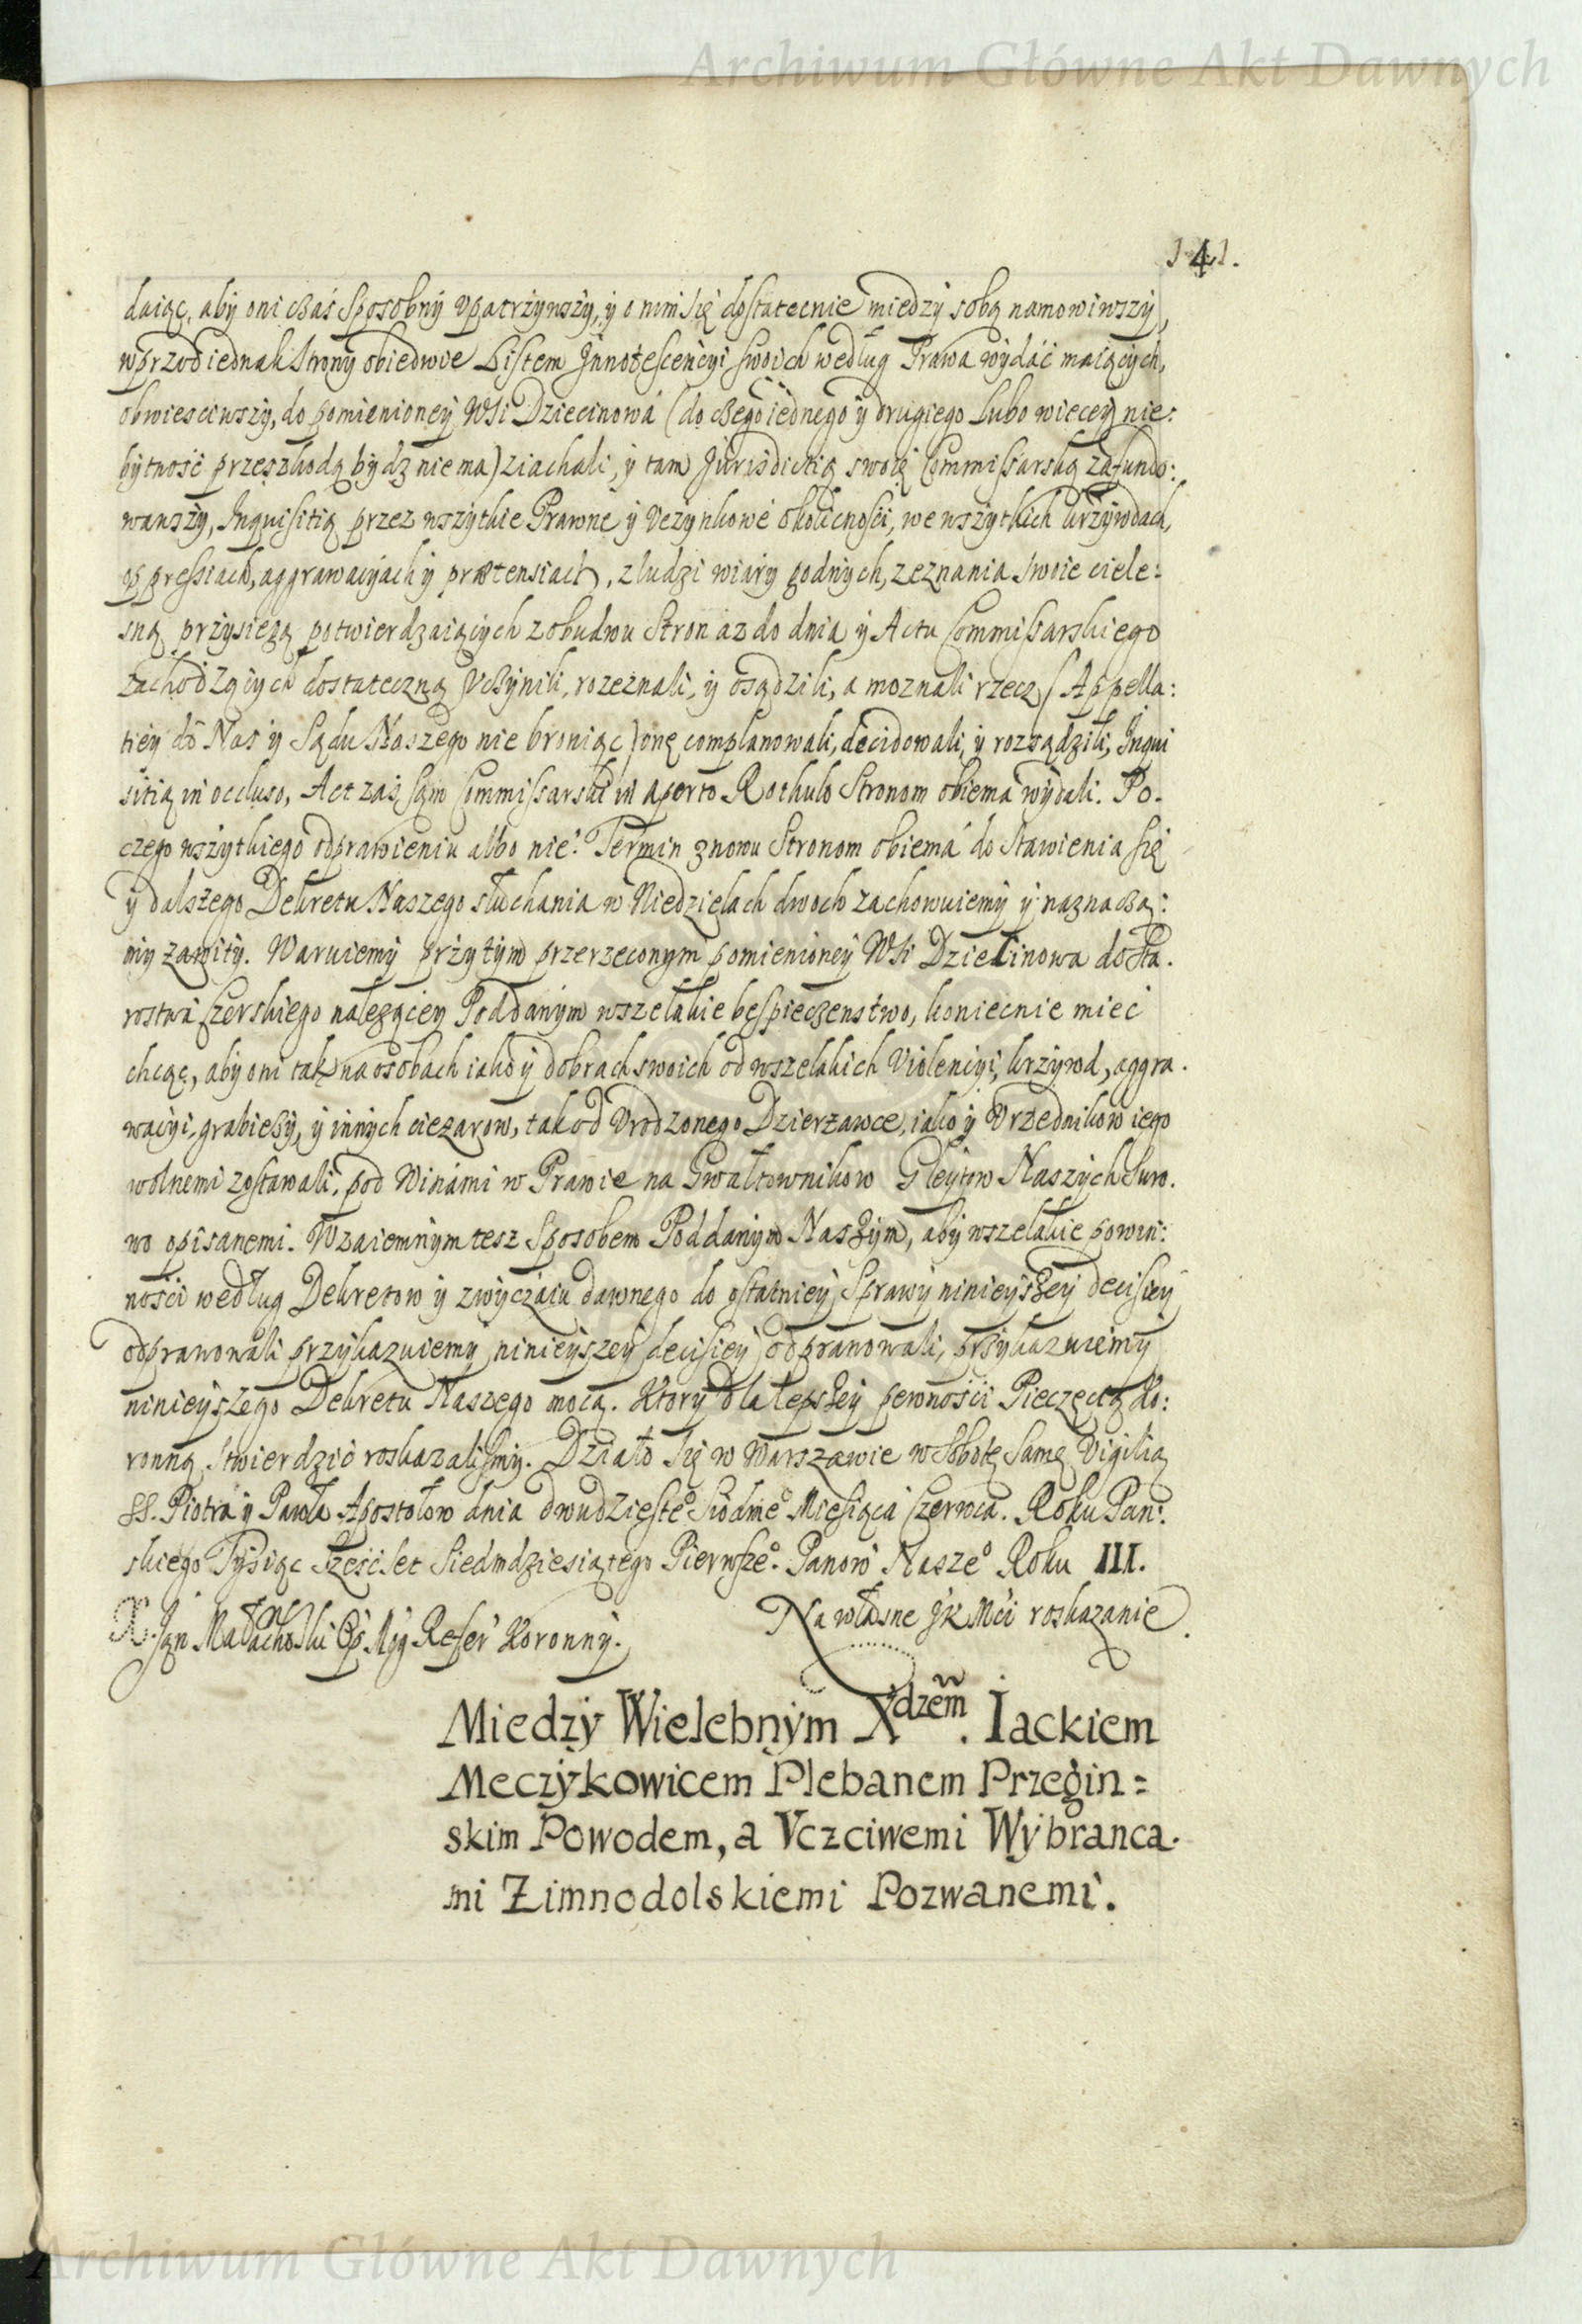 Archiwum Główne Akt Dawnych
141.
daiąc, aby oni czas sposobny vpatrzywszy, y o nim się dostatecnie miedzy sobą namowiwszy,
wprzod iednak Strony obiedwie Listem Innotescencyi swoich według Prawa wydać maiących,
obwiesciwszy, do pomienioney Wsi Dziecinowa (do czego iednego y drugiego lubo wiecey nie:
bytność przeszkodą bydz nie ma) ziachali, y tam Jurisdictią swoię Commissarską zafundo:
wawszy, Inquisitią przez wszytkie Prawne y Vczynkowe okolicności, we wszytkich krzywdach,
oppressiach, aggrawacyach y prætensiach, z ludzi wiary godnych, zeznania swoie ciele:
sną przysięgą potwierdzaiących z obudwu Stron az do dnia y Actu Commissarskiego
zachodzących dostateczną vczynili, rozeznali, y osądzili, a moznali rzecz (Appella:
tiey do Nas y Sądu Naszego nie broniąc) onę complanowali, decidowali, y rozsądzili, Inqui
sitią in occluso, Act zaś sąm Commissarski in aperto Rothulo Stronom obiema wydali. Po.
czego wszytkiego odprawieniu albo nie: Termin znowu Stronom obiema do stawienia się
y dalszego Dekretu Naszego słuchania w Niedzielach dwoch zachowuiemy y naznacza:
my zawity. Waruiemy przytym przerzeconym pomienioney Wsi Dziecinowa do Sta.
rostwa Czerskiego nalezącey Poddanym wszelakie bespieczenstwo, koniecnie mieć
chcąc, aby oni tak na osobach iako y dobrach swoich od wszelakich Violencyi, krzywd, aggra.
wacyi, grabiezy, y innych ciezarow, tak od Vrodzonego Dzierzawce, iako y Vrzednikow iego
wolnemi zostawali, pod Winami w Prawie na Gwałtownikow Gleytow Naszych Suro.
wo opisanemi. Wzaiemnym tesz sposobem Poddanym Naszym, aby wszelakie powin:
ności według Dekretow y zwyczaiu dawnego do ostatniey Sprawy ninieyszey decisiey
odprawowali przykazuiemy ninieyszey decisiey odprawowali, przykazuiemy
ninieyszego Dekretu Naszego mocą. Ktory dla lepszey pewności Pieczęcią Ko:
ronną stwierdzić roskazaliśmy. Działo się w Warszawie w Sobotę Samę Vigilią
SS. Piotra y Pawła Apostołow dnia dwudziesteo Siodmeo Miesiąca Czerwca. Roku Pań:
skiego Tysiąc Sześćset Siedmdziesiątego Pierwszeo. Panow Naszeo Roku III.
X. Jan Małachoski Op Mog Refer Koronny.
Na własne JK Mci roskazanie.
Miedzy Wielebnym Xdzem̃. Iackiem
Meczykowicem Plebanem Przegin=
skim Powodem, a Vczciwemi Wybranca.
mi Zimnodolskiemi Pozwanemi.
Archiwum Główne Akt Dawnych